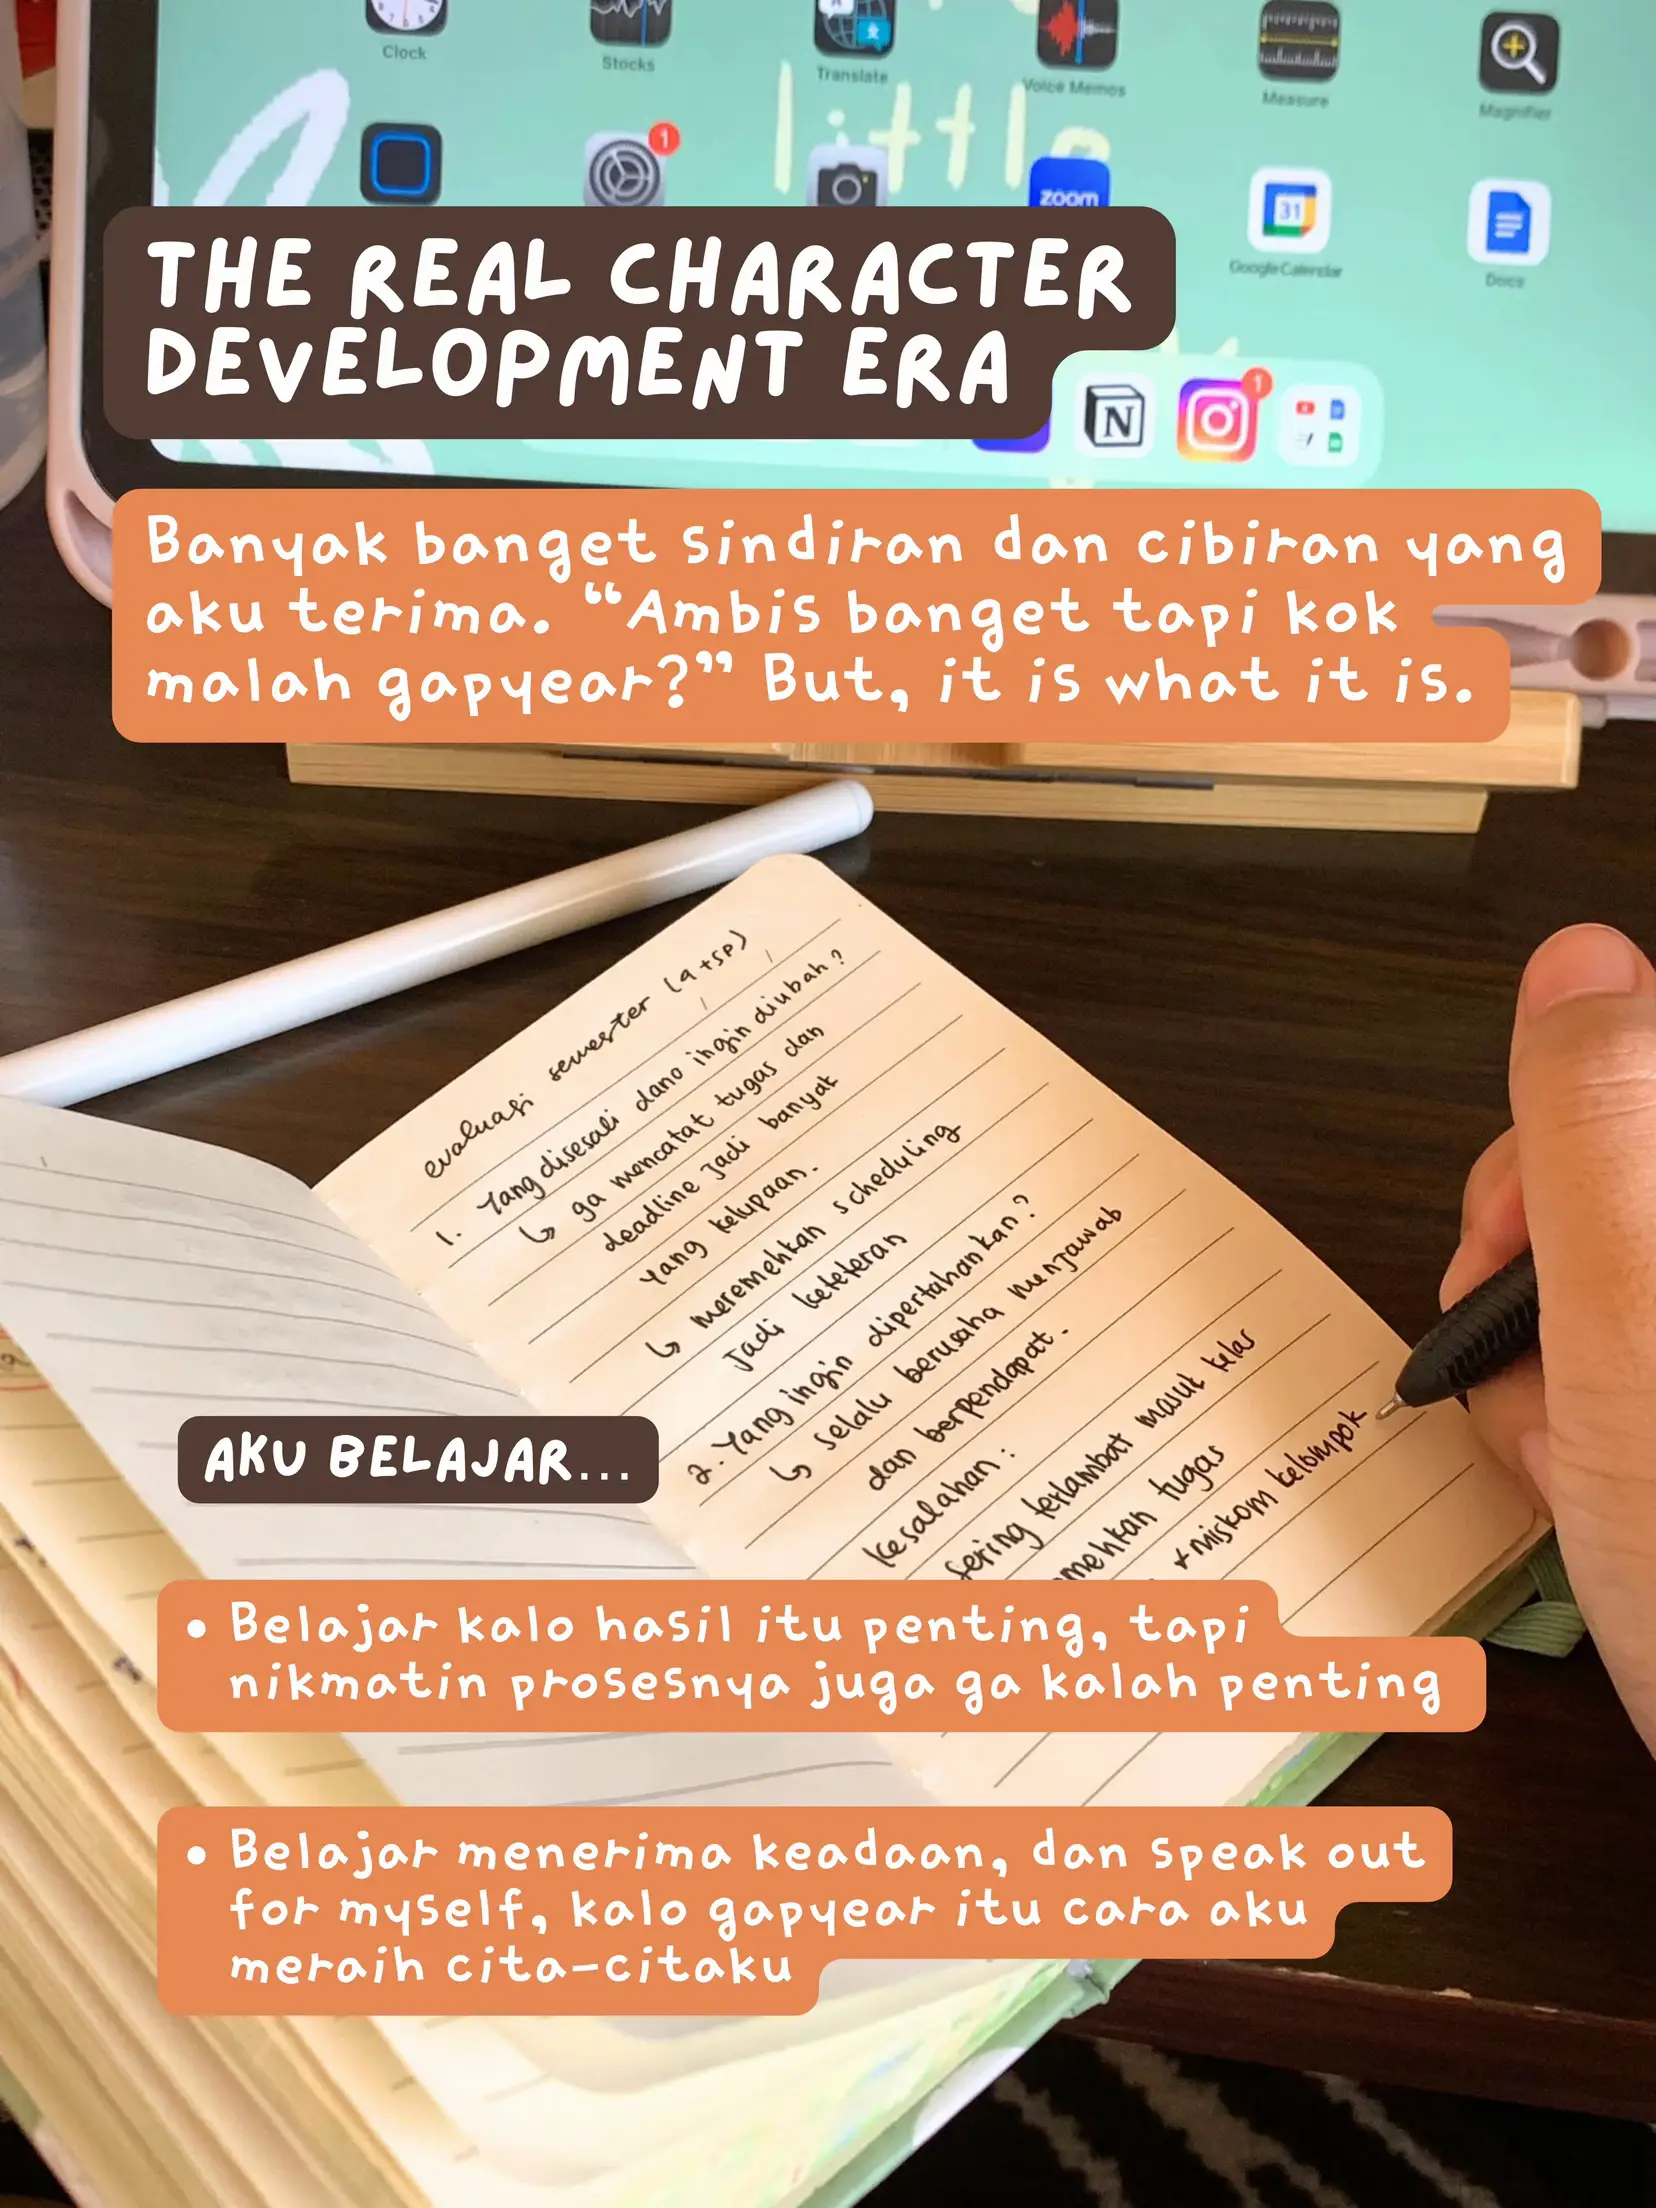 Clock
Stocks
Translate
Voice Memos
Measure
Magnifier
1
little
zoom
31
Google Calendar
Docs
THE REAL CHARACTER
DEVELOPMENT ERA
N
1
Banyak banget sindiran dan cibiran yang
aku terima. “Ambis banget tapi kok
malah gapyear?” But, it is what it is.
evaluasi semester (9 + SP)
1. Yang disesali dano ingin diubah?
↳ ga mencatat tugas dan
deadline jadi banyak
yang kelupaan.
↳ meremehkan scheduling
jadi keteteran
2. Yang ingin dipertahankan?
↳ selalu berusaha menjawab
dan berpendapat.
Kesalahan:
sering terlambat masuk kelas
mehkan tugas
+ miskom kelompok
AKU BELAJAR...
• Belajar kalo hasil itu penting, tapi
nikmatin prosesnya juga ga kalah penting
• Belajar menerima keadaan, dan speak out
for myself, kalo gapyear itu cara aku
meraih cita-citaku